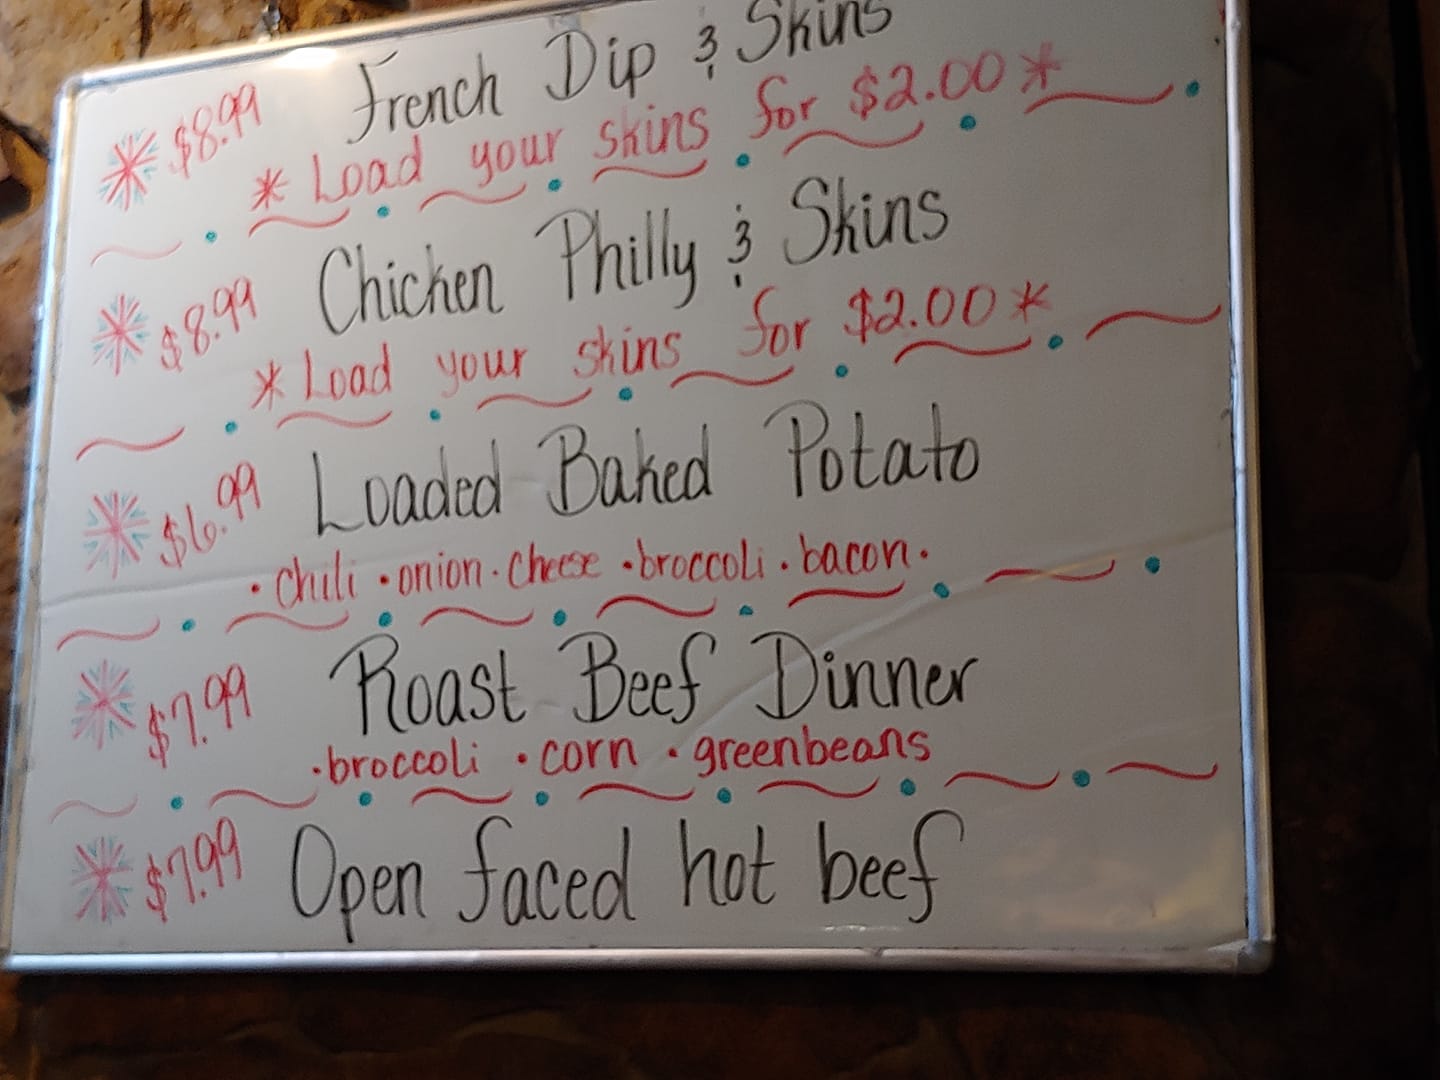 $8.99 French Dip & Skins
* Load your skins for $2.00 *
$8.99 Chicken Philly & Skins
* Load your skins for $2.00 *
$6.99 Loaded Baked Potato
• chili • onion • cheese • broccoli • bacon •
$7.99 Roast Beef Dinner
• broccoli • corn • greenbeans
$7.99 Open faced hot beef